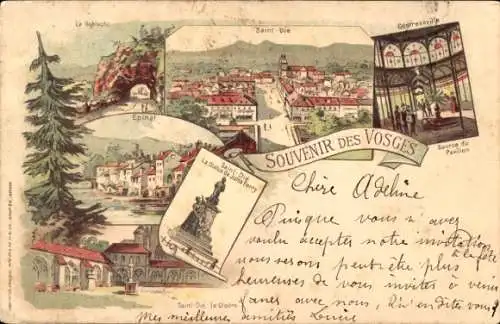 La Schlucht
Saint-Die
Contrexéville
Epinal
Source du
Pavillon
SOUVENIR DES VOSGES
Saint-Die
La Statue de Jules Ferry
Saint-Die Le Cloitre
Chère Adeline
Puisque vous n'avez
voulu accepter notre invitation
à la fête
nous serons peut être plus
heureuses de vous inviter à venir
avec nous. Qu'en dites vous
Mes meilleures amitiés Louise